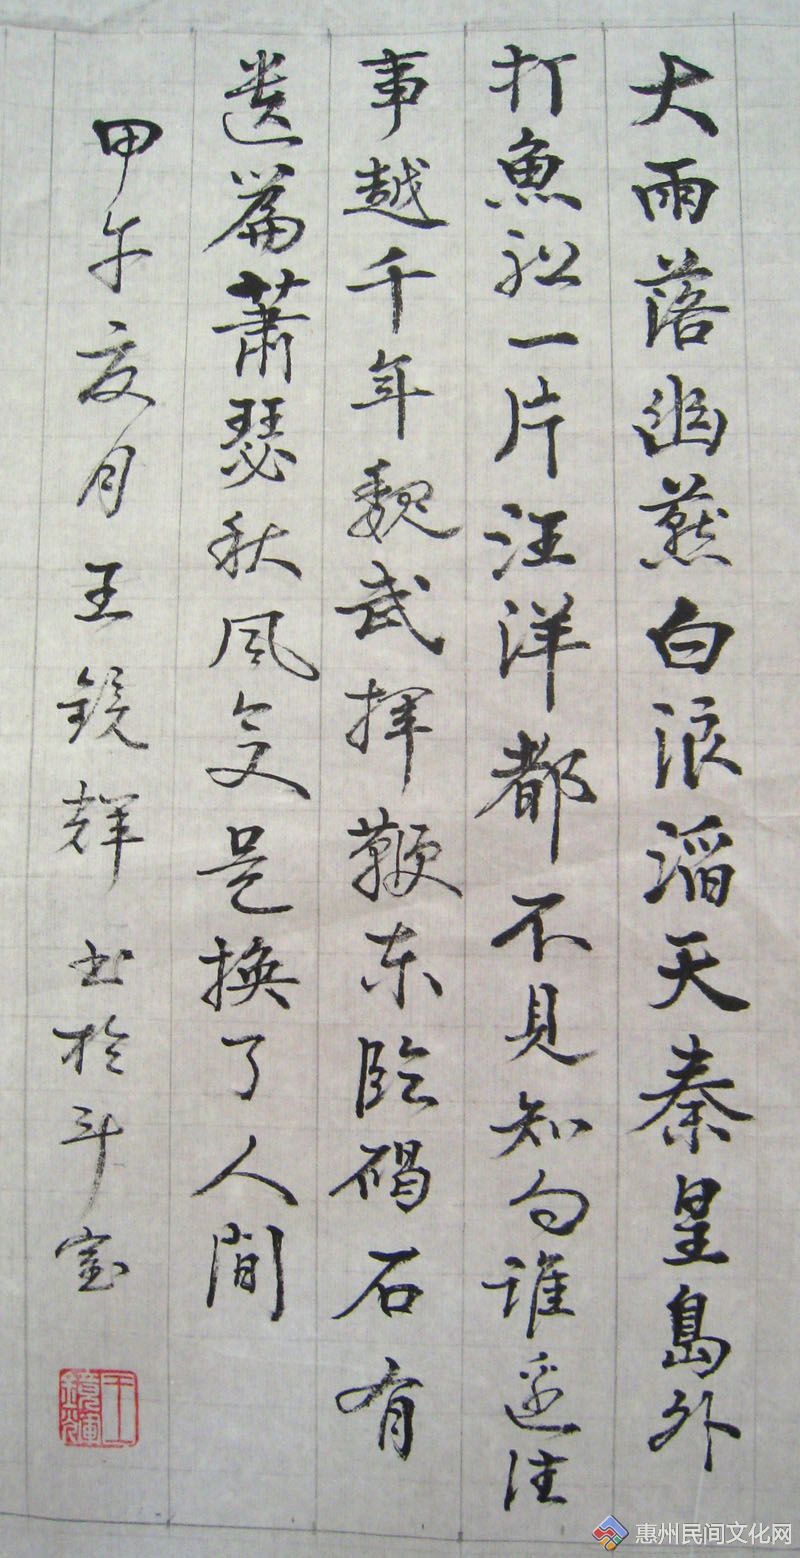 大雨落幽燕白浪滔天秦皇島外
打魚船一片汪洋都不見知向誰邊往
事越千年魏武揮鞭东臨碣石有
遺篇蕭瑟秋風今又是換了人間
甲午夏月王鏡輝书於斗室
王鏡輝
惠州民间文化网